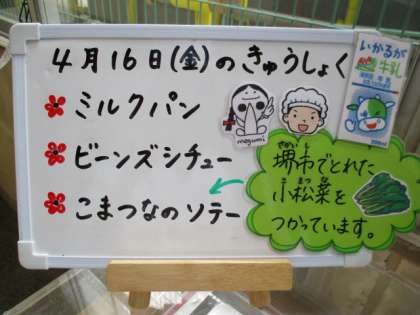 4月16日(金)のきゅうしょく
ミルクパン
ビーンズシチュー
こまつなのソテー
megumi
いかるが
牛乳
堺市でとれた
小松菜を
つかっています。